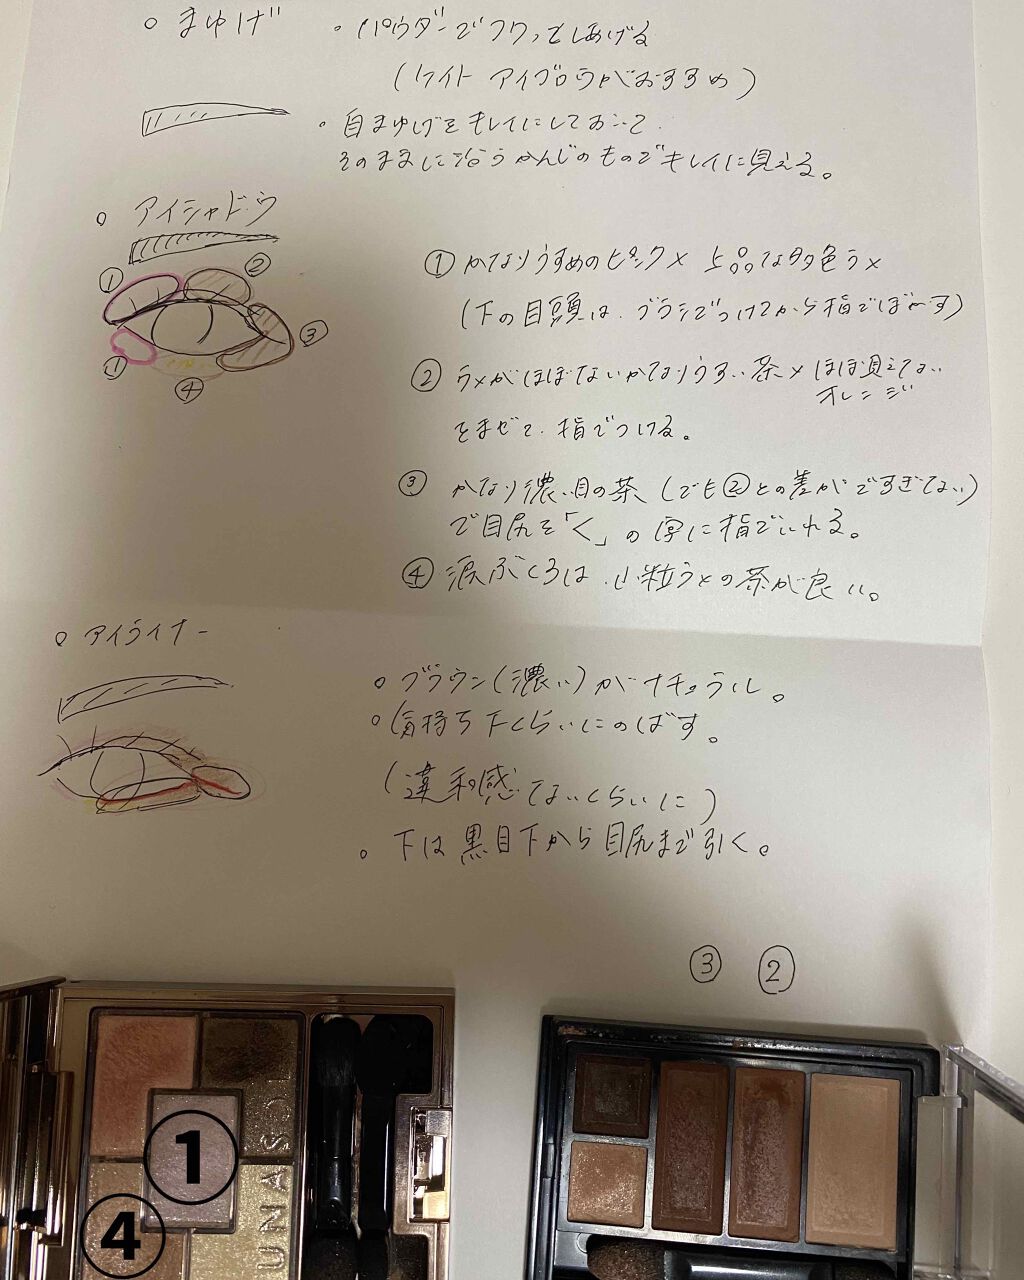 ○ まゆげ
・パウダーでフワッとしあげる
(ケイト アイブロウがおすすめ)
・自まゆげをキレイにしておいて
そのままに沿うかんじのものでキレイに見える。
○ アイシャドウ
① ② ③ ① ④
①かなりうすめのピンク×上品な多色ラメ
(下の目頭は、ブラシでつけてから指でぼかす)
②ラメがほぼないかなりうすい茶×ほぼ見えてない
オレンジ
をまぜて、指でつける。
③かなり濃い目の茶(でも②との差がですぎてない)
で目尻を「く」の字に指でいれる。
④涙ぶくろは、小粒ラメの茶が良い。
○ アイライナー
○ブラウン(濃い)がナチュラル。
○気持ち下くらいにのばす。
(違和感ないくらいに)
○下は黒目下から目尻まで引く。
③ ②
①
④
LUNASOL